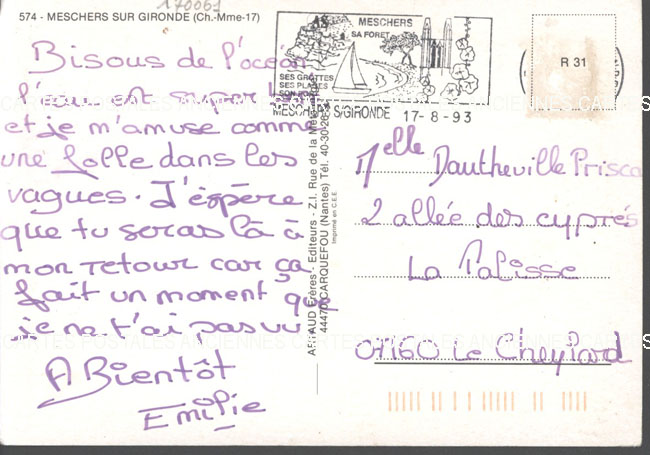 170061
574 - MESCHERS SUR GIRONDE (Ch.-Mme-17)
Bisous de l'océan
l'eau est super
et je m'amuse comme
une folle dans les
vagues. J'espère
que tu seras là à
mon retour car ça
fait un moment que
je ne t'ai pas vu
A Bientôt
Emilie
MESCHERS
SA FORET
SES GROTTES
SES PLAGES
SON PORT
MESCHERS S/GIRONDE 17-8-93
R 31
ARTAUD Frères - Editeurs - Z.I. Rue de la Mé
44470 CARQUEFOU (Nantes) Tél. 40-30-28
Imprimé en C.E.E.
Melle Dautheville Prisca
2 allée des cyprés
La Palisse
07160 Le Cheylard
CARTES POSTALES ANCIENNES CARTES POSTALES ANCIENNES